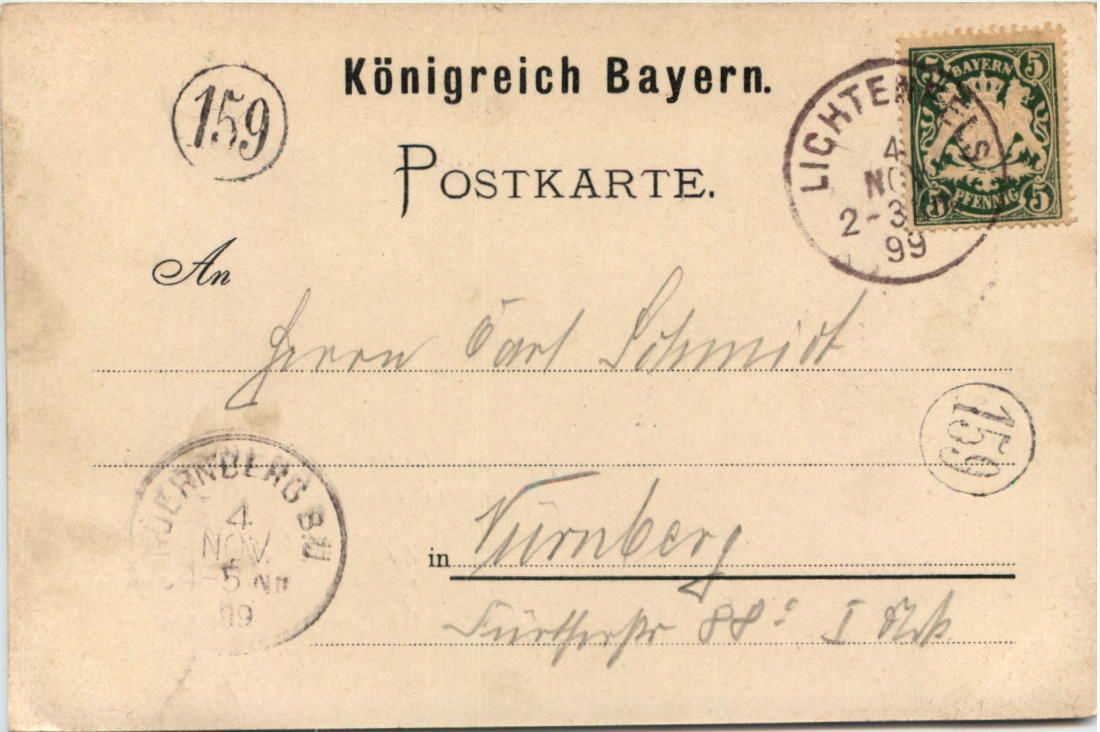 Königreich Bayern.
159
POSTKARTE.
LICHTENFELS
4
NOV
2-3
99
5 5
BAYERN
PFENNIG
5 5
An
Herrn Carl Schmidt
159
NUERNBERG B.H.
4
NOV.
4-5 NM
99
in Nürnberg
Fürtherstr 88 I